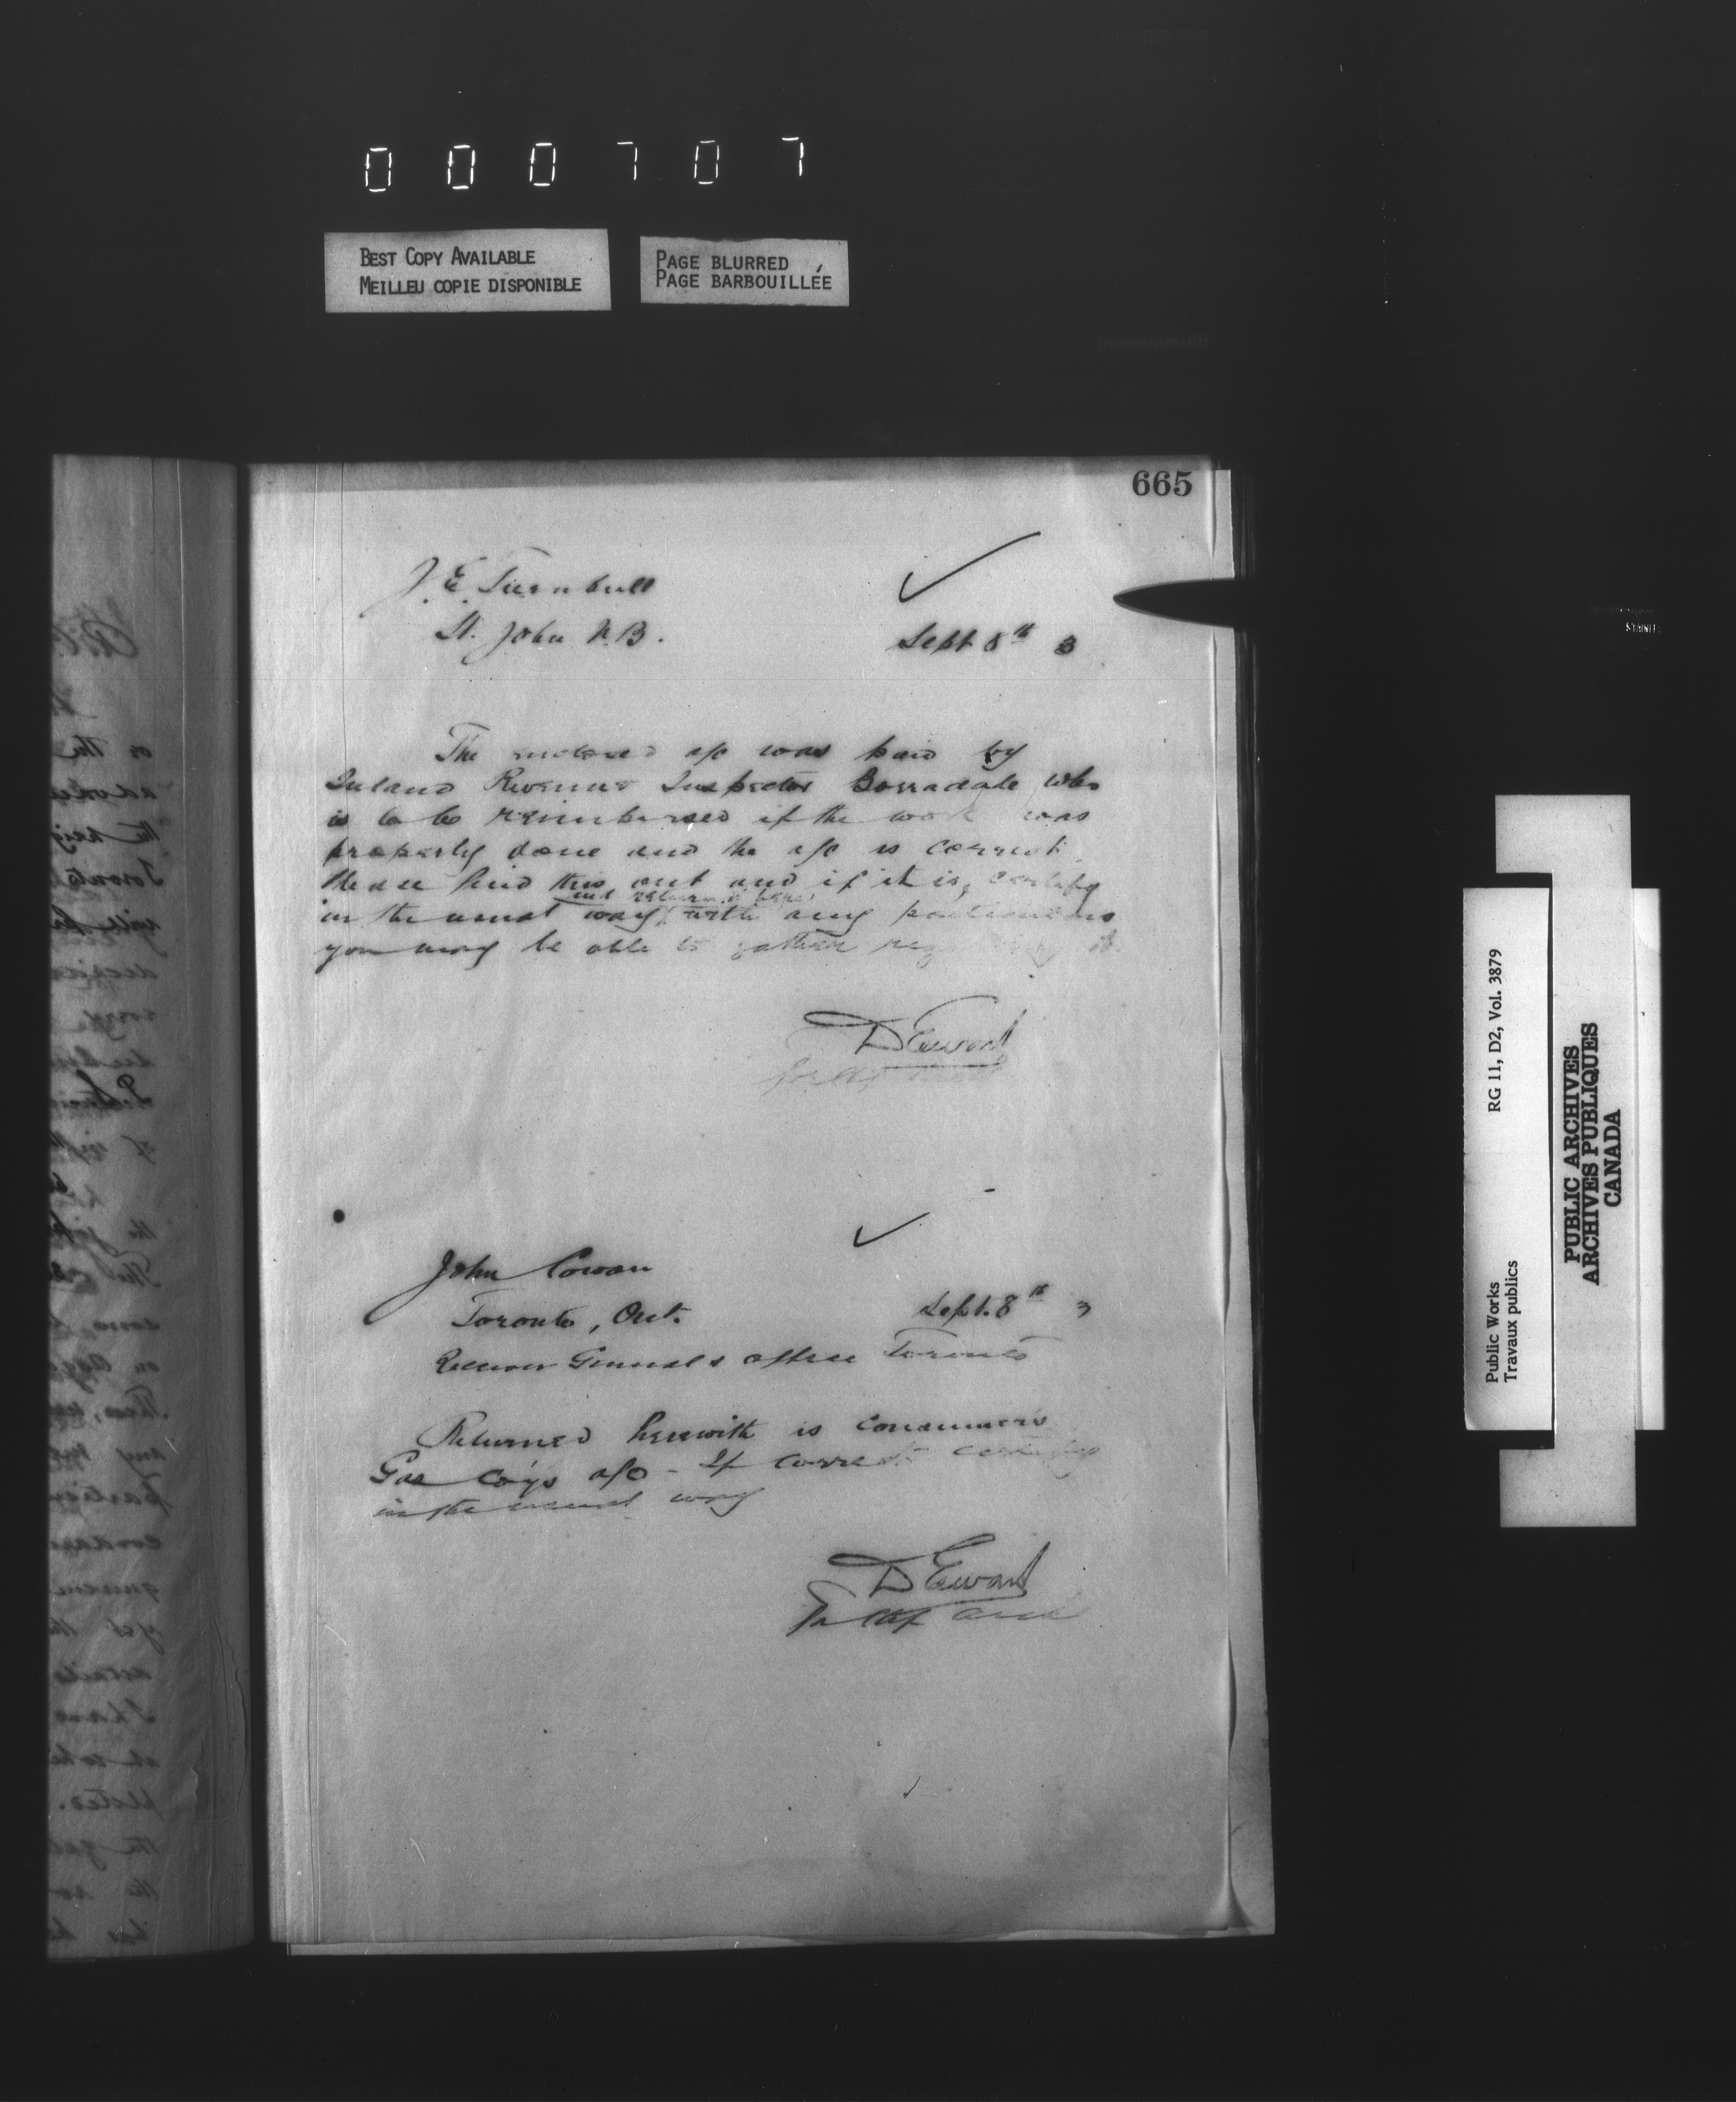 000707
BEST COPY AVAILABLE
MEILLEU COPIE DISPONIBLE
PAGE BLURRED
PAGE BARBOUILLÉE
665
J. E. Turnbull
St. John N.B.
Sept 8th 3
The enclosed a/c was paid by
Inland Revenue Inspector Borradale who
is to be reimbursed if the work was
properly done and the a/c is correct.
Please find this out and if it is, certify
and return it here
in the usual way, with any particulars
you may be able to gather regarding it.
D Ewart
for Chf Arch
John Cowan
Toronto, Ont.
Sept. 8th 3
Receiver Generals office Toronto
Returned herewith is Consumers
Gas Coys a/c - If correct certify
in the usual way
D Ewart
For Chf Arch
Public Works
Travaux publics
RG 11, D2, Vol. 3879
PUBLIC ARCHIVES
ARCHIVES PUBLIQUES
CANADA